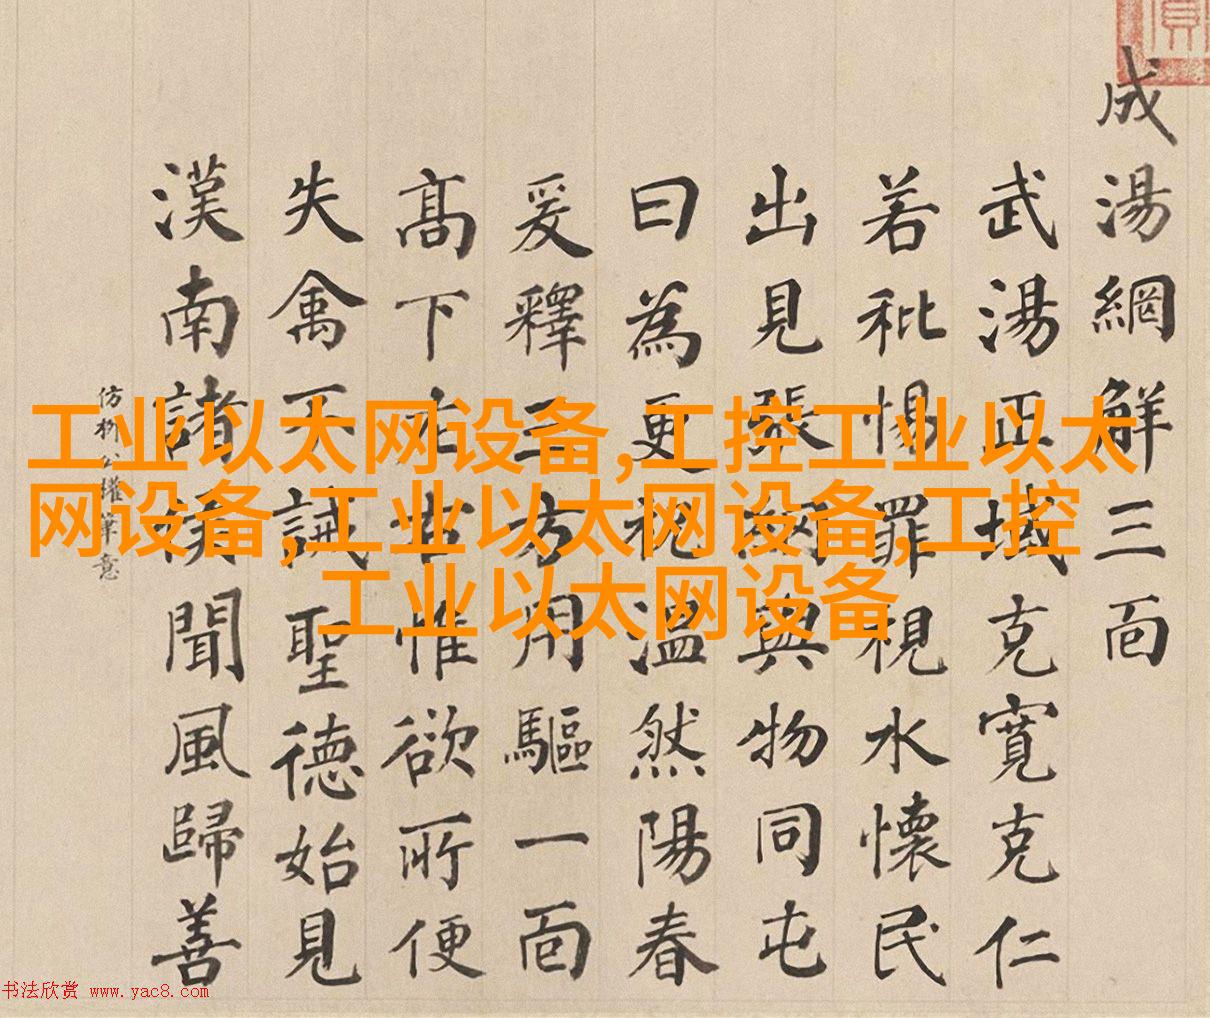 工业以太网设备,工控工业以太
网设备,工业以太网设备,工控
工业以太网设备
成湯網解三面
武湯正域克寬克仁
若粃惕罪視水懷民
出見張 與物同屯
曰為更祝溫然陽春
爰釋三方用驅一面
高下左右惟欲所便
失禽不誡聖德始見
漢南諸侯聞風歸善
仿柳公權筆意
书法欣赏 www.yac8.com